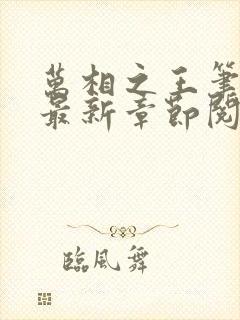 萬相之王筆
最新章節閱
臨風舞